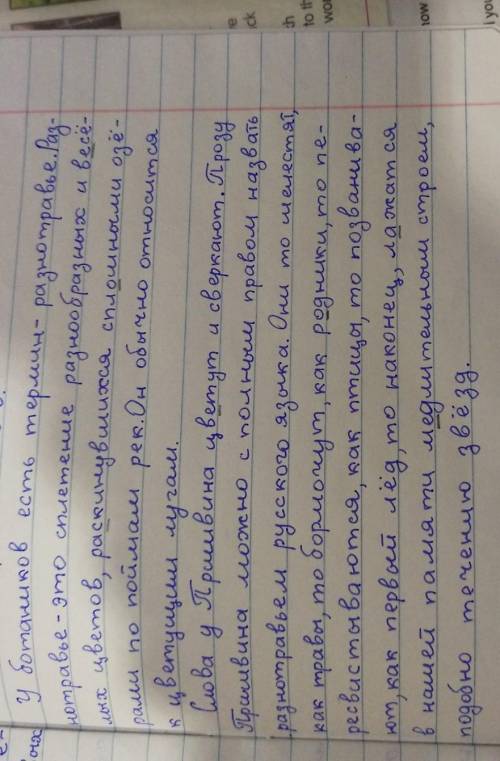 У ботаников есть термин- разнотравье. Раз-
нотравье - это сплетение разнообразных и весё-
лых цветов, раскинувшихся сплошными озё-
рами по поймам рек. Он обычно относится
к цветущим лугам.
Слова у Пришвина цветут и сверкают. Прозу
Пришвина можно с полным правом назвать
разнотравьем русского языка. Они то шелестят,
как травы, то бормочут, как родники, то пе-
ресвистываются, как птицы, то позванива-
ют, как первый лёд, то наконец, лажатся
в нашей памяти медлительным строем,
подобно течению звёзд.